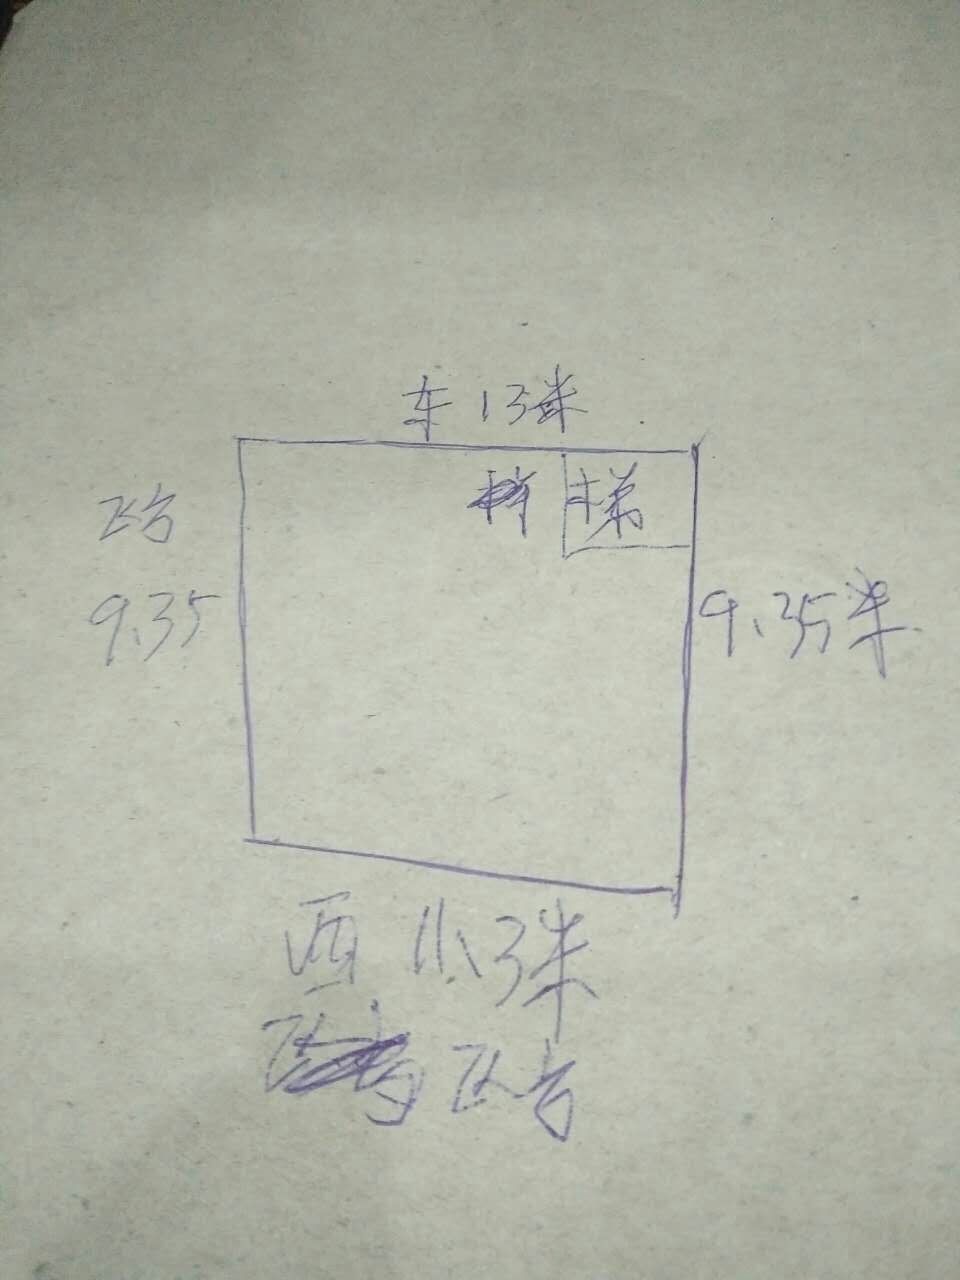 东 13米
梯
飞台
9.35
9.35米
西 11.3米
飞台